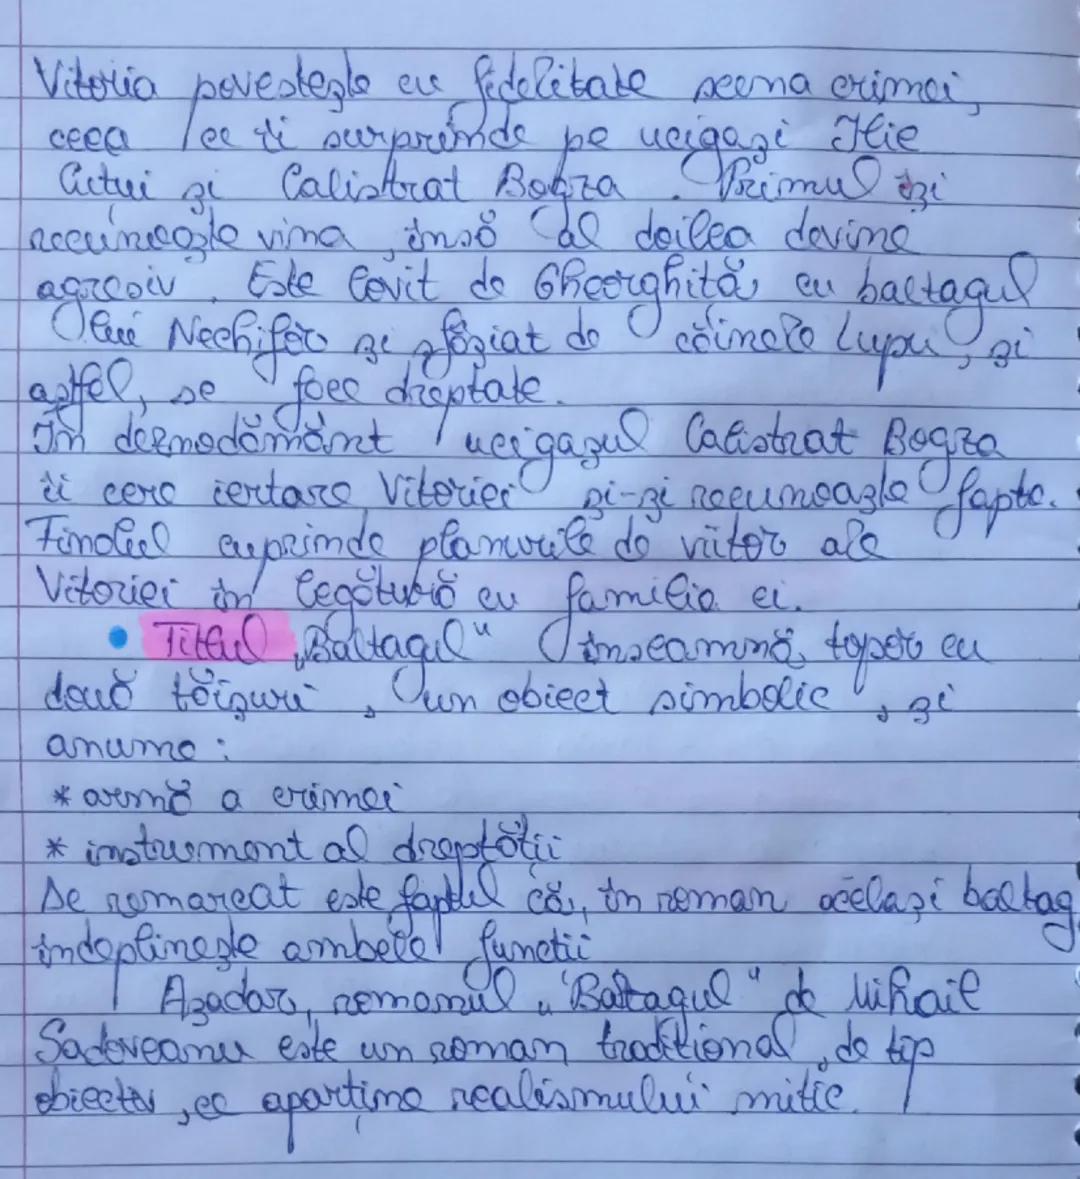 Vitoria povestește cu fidelitate scena crimei,
ceea ce îi surprinde pe ucigași Ilie
Cuțui și Calistrat Bogza. Primul își
recunoaște vina, însă al doilea devine
agresiv. Este lovit de Gheorghiță, cu baltagul
lui Nechifor și sfâșiat de câinele Lupu, și
astfel, se face dreptate.
În deznodământ ucigașul Calistrat Bogza
îi cere iertare Vitoriei și-și recunoaște fapta.
Finalul cuprinde planurile de viitor ale
Vitoriei în legătură cu familia ei.
• Titlul „Baltagul" înseamnă topor cu
două tăișuri, un obiect simbolic, și
anume:
* armă a crimei
* instrument al dreptății
De remarcat este faptul că, în roman același baltag
îndeplinește ambele funcții
Așadar, romanul „Baltagul" de Mihail
Sadoveanu este un roman tradițional, de tip
obiectiv, ce aparține realismului mitic.